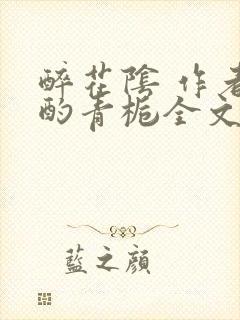 醉花陰 作者
酌青栀全文
藍之顔